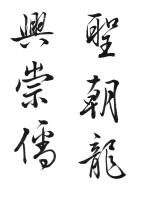 聖朝龍
興崇儒